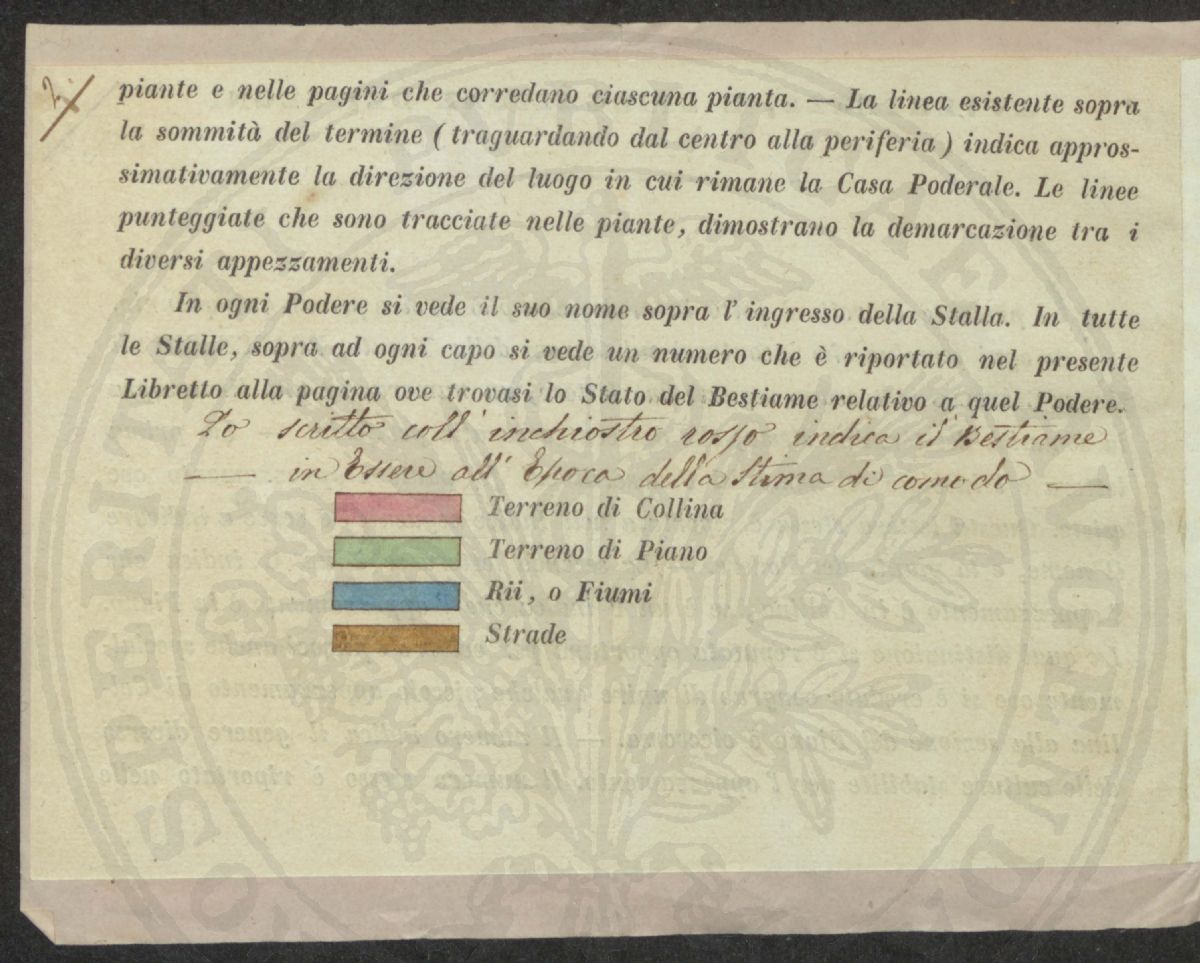 2.
piante e nelle pagini che corredano ciascuna pianta. — La linea esistente sopra
la sommità del termine ( traguardando dal centro alla periferia ) indica appros-
simativamente la direzione del luogo in cui rimane la Casa Poderale. Le linee
punteggiate che sono tracciate nelle piante, dimostrano la demarcazione tra i
diversi appezzamenti.
In ogni Podere si vede il suo nome sopra l' ingresso della Stalla. In tutte
le Stalle, sopra ad ogni capo si vede un numero che è riportato nel presente
Libretto alla pagina ove trovasi lo Stato del Bestiame relativo a quel Podere.
Lo scritto coll' inchiostro rosso indica il Bestiame
— in Essere all' Epoca della Stima di comodo —
Terreno di Collina
Terreno di Piano
Rii, o Fiumi
Strade